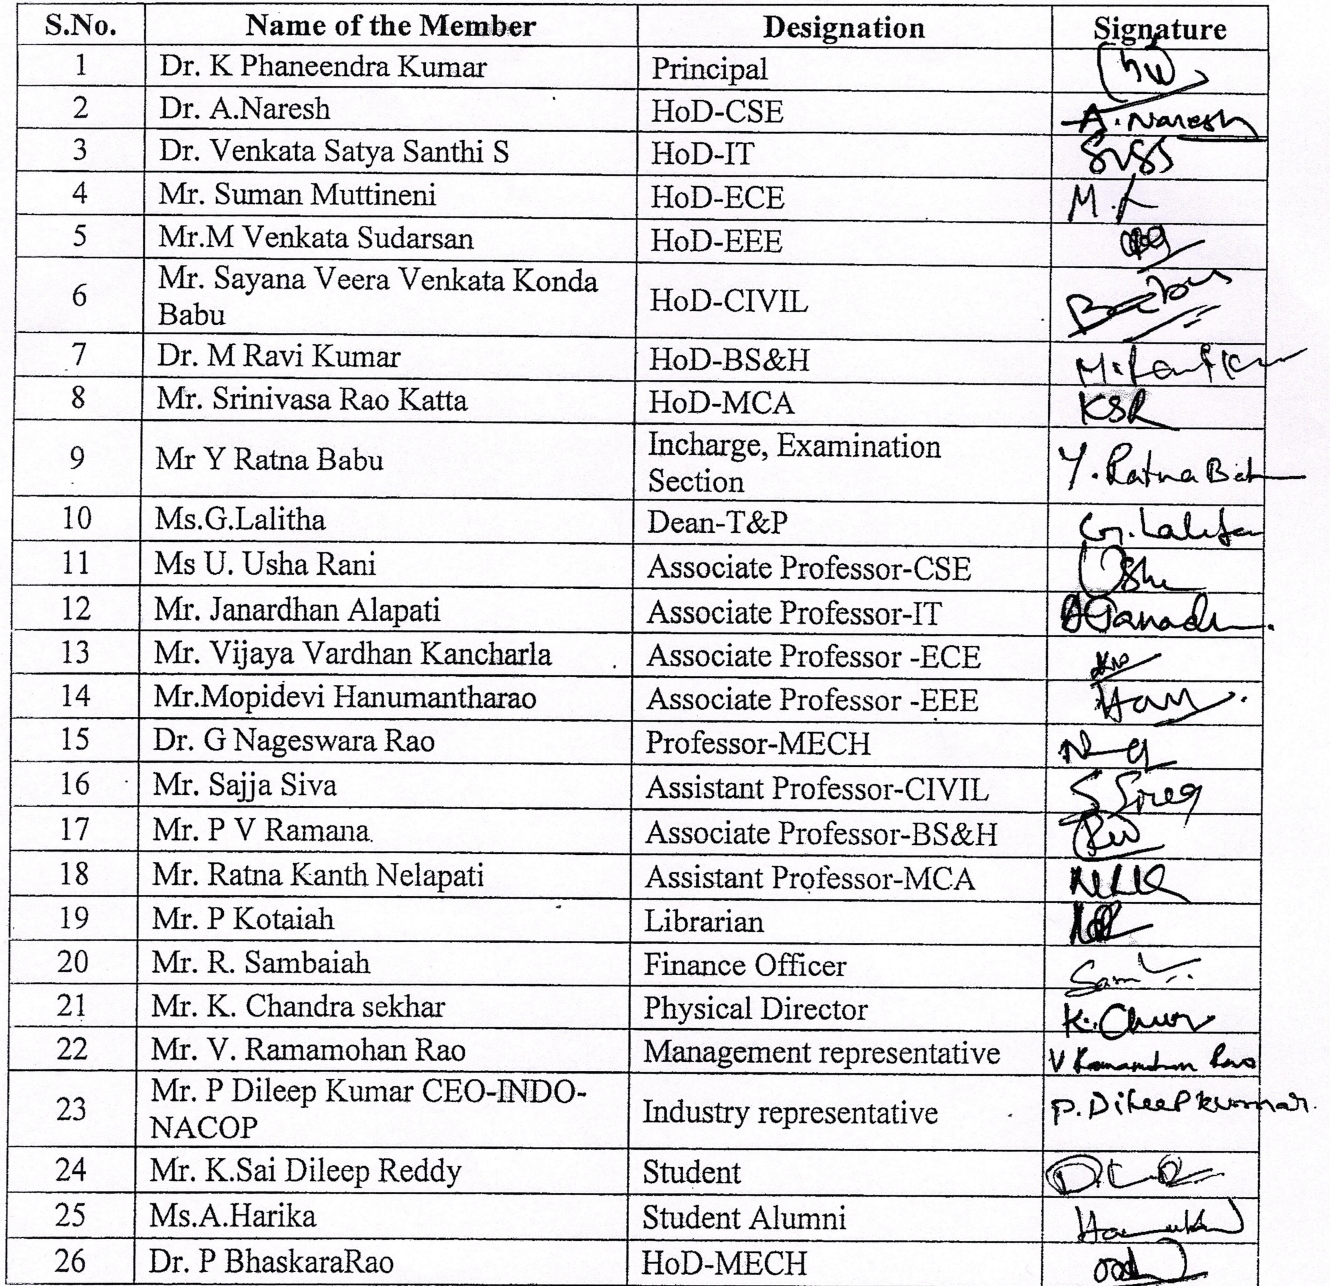 S.No. Name of the Member Designation Signature
1 Dr. K Phaneendra Kumar Principal
2 Dr. A.Naresh HoD-CSE A. Naresh
3 Dr. Venkata Satya Santhi S HoD-IT SVSS
4 Mr. Suman Muttineni HoD-ECE
5 Mr.M Venkata Sudarsan HoD-EEE
6 Mr. Sayana Veera Venkata Konda
Babu HoD-CIVIL
7 Dr. M Ravi Kumar HoD-BS&H
8 Mr. Srinivasa Rao Katta HoD-MCA KSR
9 Mr Y Ratna Babu Incharge, Examination
Section Y. Ratna Bab
10 Ms.G.Lalitha Dean-T&P G. Lalitha
11 Ms U. Usha Rani Associate Professor-CSE
12 Mr. Janardhan Alapati Associate Professor-IT
13 Mr. Vijaya Vardhan Kancharla Associate Professor -ECE
14 Mr.Mopidevi Hanumantharao Associate Professor -EEE
15 Dr. G Nageswara Rao Professor-MECH
16 Mr. Sajja Siva Assistant Professor-CIVIL
17 Mr. P V Ramana Associate Professor-BS&H
18 Mr. Ratna Kanth Nelapati Assistant Professor-MCA
19 Mr. P Kotaiah Librarian
20 Mr. R. Sambaiah Finance Officer
21 Mr. K. Chandra sekhar Physical Director
22 Mr. V. Ramamohan Rao Management representative V Ramamohan Rao
23 Mr. P Dileep Kumar CEO-INDO-
NACOP Industry representative P. Dileep kumar.
24 Mr. K.Sai Dileep Reddy Student
25 Ms.A.Harika Student Alumni
26 Dr. P BhaskaraRao HoD-MECH